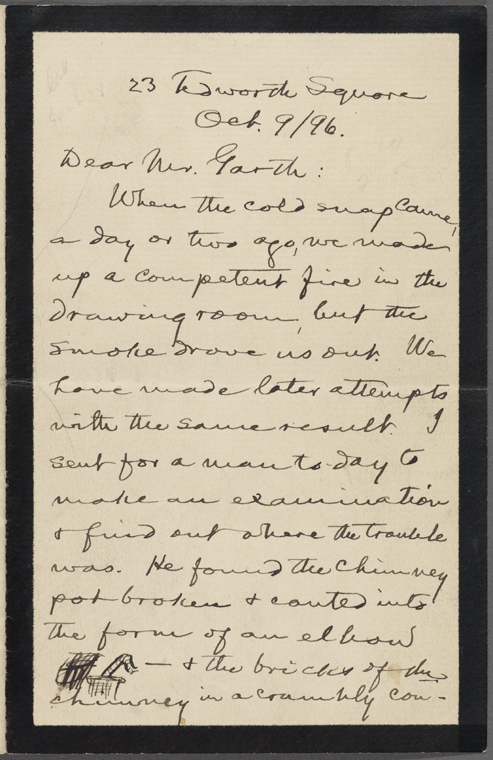 23 Tedworth Square
Oct. 9/96.
Dear Mr. Garth:
When the cold snap came,
a day or two ago, we made
up a competent fire in the
drawing room, but the
smoke drove us out. We
have made later attempts
with the same result. I
sent for a man to-day to
make an examination
& find out where the trouble
was. He found the chimney
pot broken & canted into
the form of an elbow
— & the bricks of the
chimney in a crumbly con-